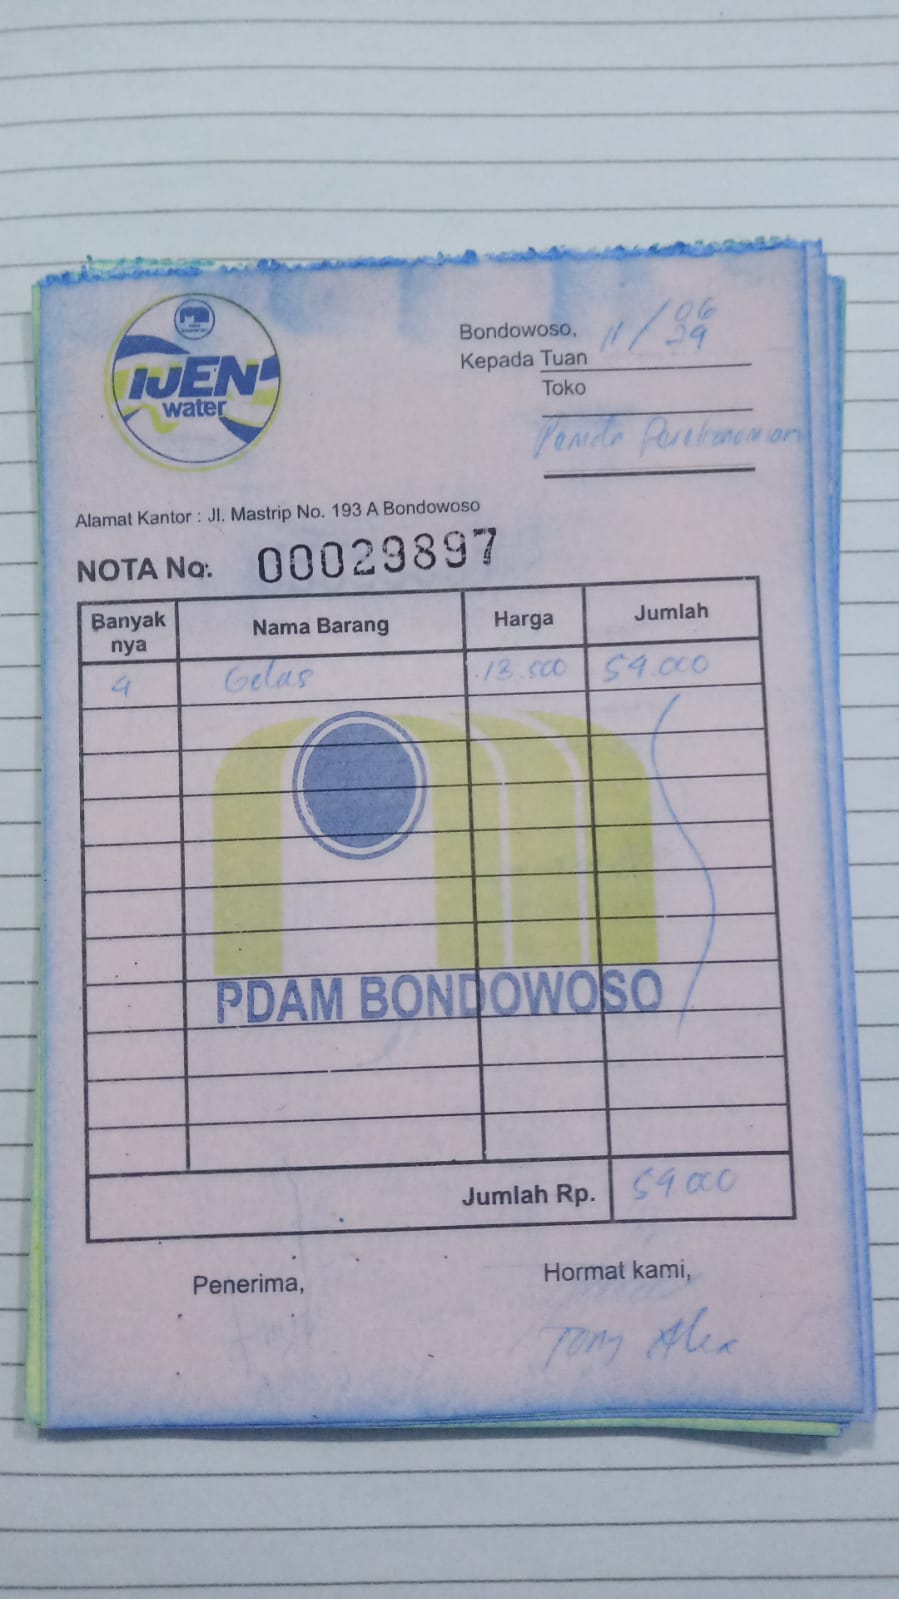 IJEN
water
Bondowoso, 11 / 06
24
Kepada Tuan
Toko
Pemda Perekonomian
Alamat Kantor : Jl. Mastrip No. 193 A Bondowoso
NOTA No. 00029897
Banyak nya Nama Barang Harga Jumlah
4 Gelas 13.500 54.000
PDAM BONDOWOSO
Jumlah Rp. 54.000
Penerima, Hormat kami,
Tony Alex